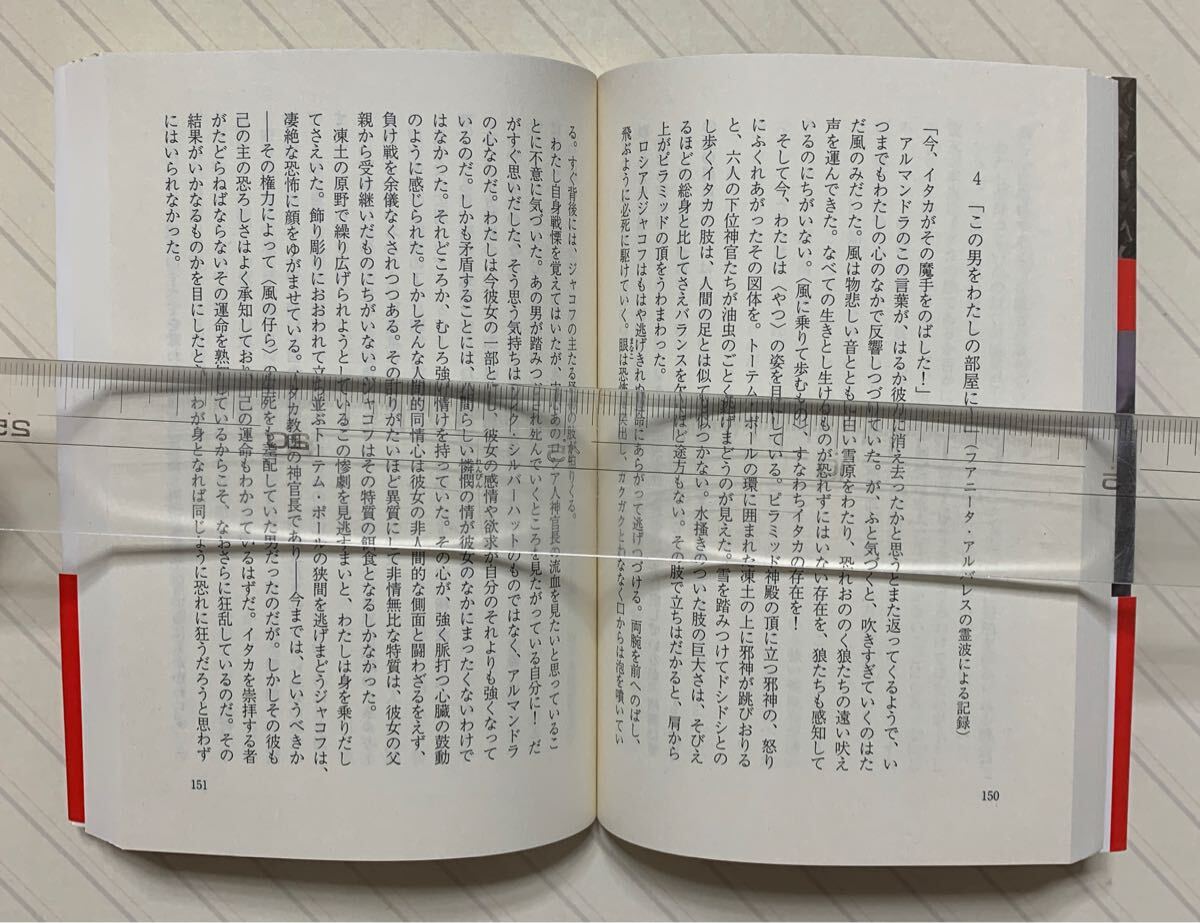 4 「この男をわたしの部屋に 」(フアニータ・アルバレスの霊波による記録)
「今、イタカがその魔手をのばした!」
アルマンドラのこの言葉が、はるか彼 に消え去ったかと思うとまた返ってくるようで、い
つまでもわたしの心のなかで反響しつづけていた。が、ふと気づくと、吹きすぎていくのはた
だ風のみだった。風は物悲しい音とともに白い雪原をわたり、恐れおののく狼たちの遠い吠え
声を運んできた。なべての生きとし生けるものが恐れずにはいない存在を、狼たちも感知して
いるのにちがいない。〈風に乗りて歩むもの〉、すなわちイタカの存在を!
そして今、わたしは〈やつ〉の姿を目にしている。ピラミッド神殿の頂に立つ邪神の、怒り
にふくれあがったその図体を。トーテム・ポールの環に囲まれた凍土の上に邪神が跳びおりる
と、六人の下位神官たちが油虫のごとく逃げまどうのが見えた。雪を踏みつけてドシドシとの
し歩くイタカの肢は、人間の足とは似ても似つかない。水掻きのついた肢の巨大さは、そびえ
るほどの総身と比してさえバランスを欠くほど途方もない。その肢で立ちはだかると、肩から
上がピラミッドの頂をうわまわった。
ロシア人ジャコフはもはや逃げきれぬ 命にあらがって逃げつづける。両腕を前へのばし、
飛ぶように必死に駆けていく。眼は恐怖 突出し、ガクガクとわななく口からは泡を噴いてい
150
る。すぐ背後には、ジャコフの主たる の肢が りくる。
わたし自身戦慄を覚えてはいたが、 あのロシア人神官長の流血を見たいと思っているこ
とに不意に気づいた。あの男が踏みつ され死んでいくところを見たがっている自分に! だ
がすぐ思いだした、そう思う気持ちは ク・シルバーハットのものではなく、アルマンドラ
の心なのだ。わたしは今彼女の一部と し、彼女の感情や欲求が自分のそれよりも強くなって
いるのだ。しかも矛盾することには、人間らしい憐憫の情が彼女のなかにまったくないわけで
はなかった。それどころか、むしろ強 情けを持っていた。その心が、強く脈打つ心臓の鼓動
のように感じられた。しかしそんな人間的同情心は彼女の非人間的な側面と闘わざるをえず、
負け戦を余儀なくされつつある。その計りがたいほど異質にして非情無比な特質は、彼女の父
親から受け継いだものにちがいない。ジャコフはその特質の餌食となるしかなかった。
凍土の原野で繰り広げられようとしているこの惨劇を見逃すまいと、わたしは身を乗りだし
てさえいた。飾り彫りにおおわれて立ち並ぶトーテム・ポールの狭間を逃げまどうジャコフは、
凄絶な恐怖に顔をゆがませている。イタカ教団の神官長であり――今までは、というべきか
――その権力によって〈風の仔ら〉の生死をも差配していた男だったのだが。しかしその彼も
己の主の恐ろしさはよく承知しており、己の運命もわかっているはずだ。イタカを崇拝する者
がたどらねばならないその運命を熟知しているからこそ、なおさらに狂乱しているのだ。その
結果がいかなるものかを目にしたとき、わが身となれば同じように恐れに狂うだろうと思わず
にはいられなかった。
151